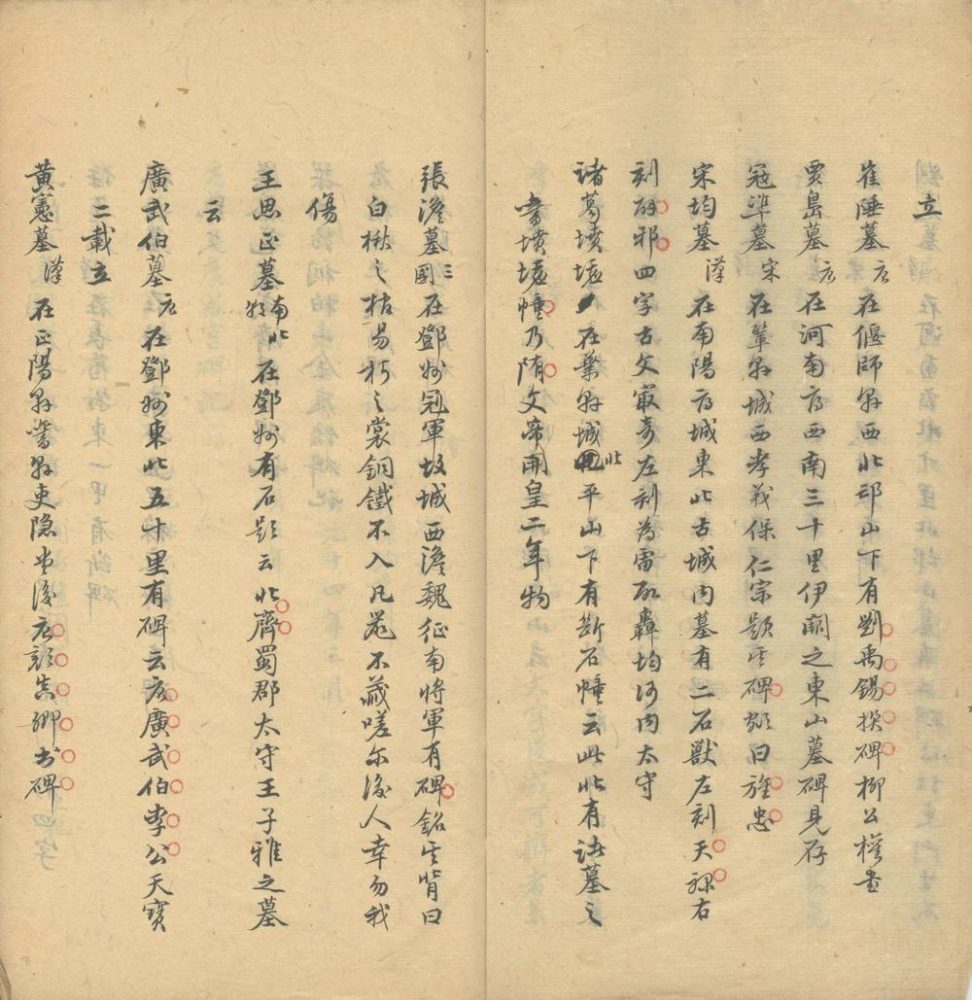 劉立墓
崔陲墓唐在偃師縣西北邙山下有劉禹錫撰碑柳公權書
賈島墓唐在河南府西南三十里伊闕之東山墓碑見存
寇準墓宋在鞏縣城西孝義保仁宗題其碑額曰旌忠
宋均墓漢在南陽府城東北古城內墓有二石獸左刻天祿右
刻辟邪四字古文㝡奇左刻為雷所轟均河內太守
諸葛墳墟在葉縣城北平山下有斷石幢云此北有諸墓之
旁墳墟幢乃隋文帝開皇二年物
張澹墓三國在鄧州冠軍故城西澹魏征南將軍有碑銘其背曰
白楸之棺易朽之裳銅鐵不入凡器不藏嗟爾後人幸勿我
傷
王思正墓南北朝在鄧州有石題云北齊蜀郡太守王子雅之墓
云
廣武伯墓唐在鄧州東北五十里有碑云唐廣武伯李公天寶
二載立
黃憲墓漢在正陽縣舊縣吏隱堂後唐顏真卿書碑